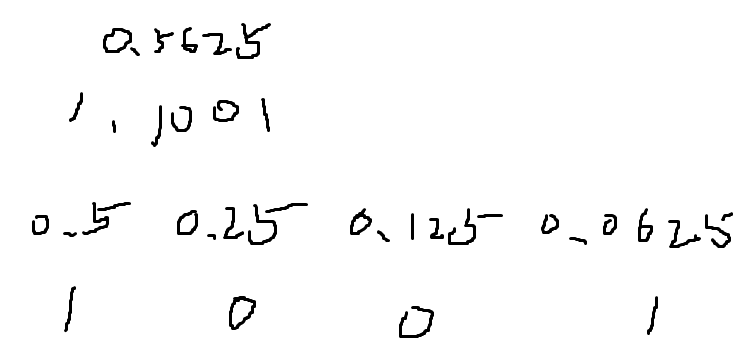 0.5625
1.1001
0.5 0.25 0.125 0.0625
1 0 0 1